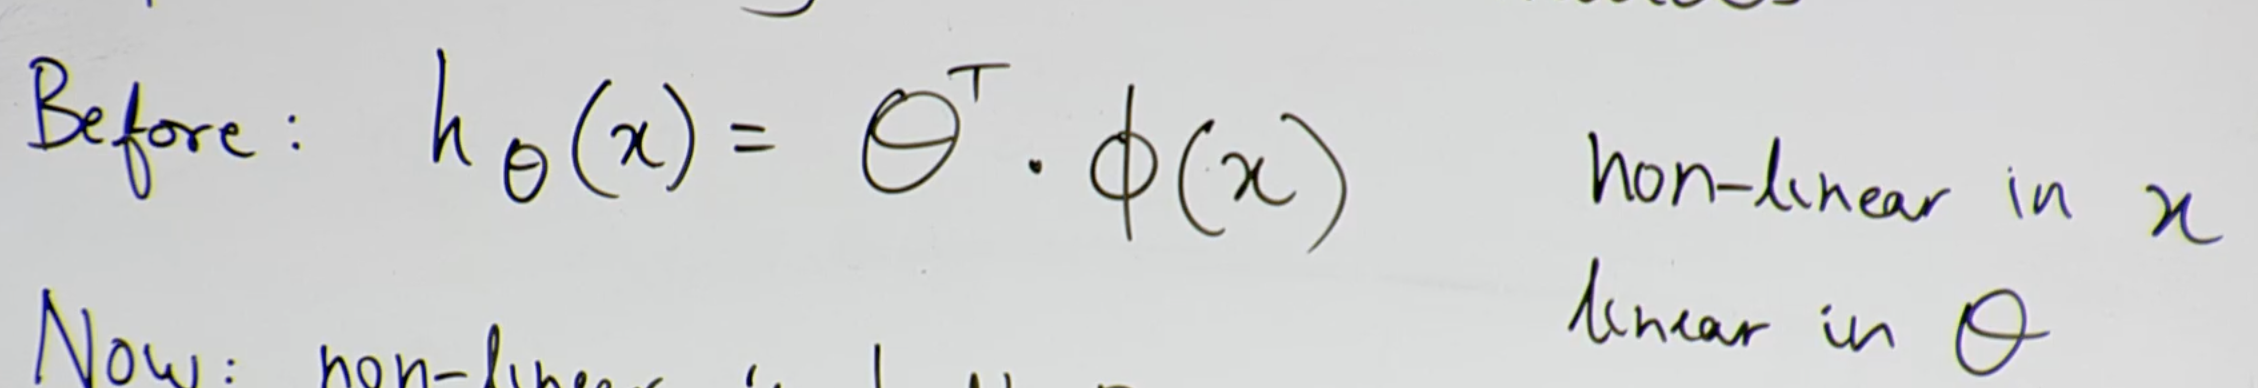 Before: hθ(x) = θᵀ · ϕ(x) non-linear in x
linear in θ
Now: non-linear in